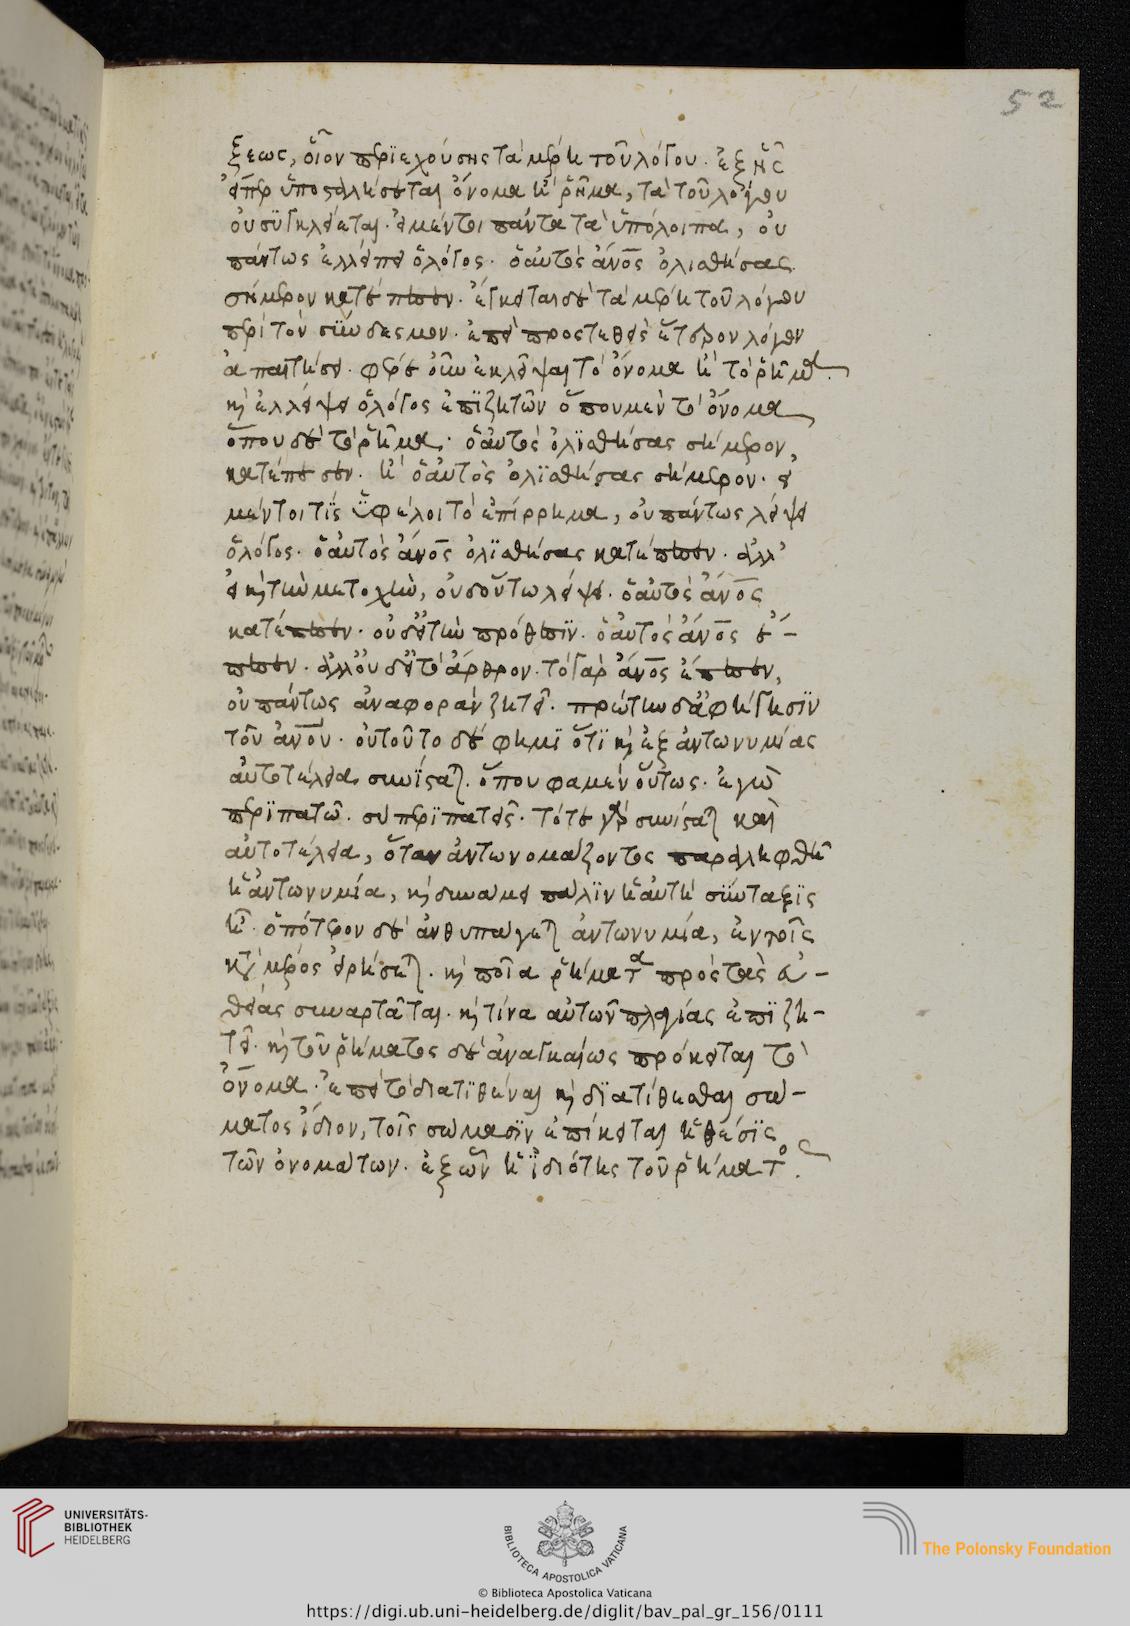 52
ξεως, οἷον περιεχούσης τὰ μέρη τοῦ λόγου. ἐξ ἧς
εἴπερ ὑποσταλήσεται ὄνομα ἢ ῥῆμα, τὰ τοῦ λόγου
οὐ συγκλείεται. εἰ μέντοι πάντα τὰ ὑπόλοιπα, οὐ
πάντως ἐλλείπει ὁ λόγος. ὁ αὐτὸς ἄνος ὀλισθήσας
σήμερον κατέπεσεν. ἔγκειται δὲ τὰ μέρη τοῦ λόγου
περὶ τὸν σύνδεσμον. ἐπεὶ προστεθεὶς ἕτερον λόγον
ἀπαιτήσει. φέρε οὖν ἐκλεῖψαι τὸ ὄνομα ἢ τὸ ῥῆμα.
καὶ ἐλλείψει ὁ λόγος ἐπιζητῶν ὅπου μὲν τὸ ὄνομα
ὅπου δὲ τὸ ῥῆμα. ὁ αὐτὸς ὀλισθήσας σήμερον,
κατέπεσεν. ἢ ὁ αὐτὸς ὀλισθήσας σήμερον. εἰ
μέντοι τίς ὑφέλοι τὸ ἐπίρρημα, οὐ πάντως λείψει
ὁ λόγος. ὁ αὐτὸς ἄνος ὀλισθήσας κατέπεσεν. ἀλλ'
εἰ καὶ τὴν μετοχὴν, οὐδ' οὕτω λείψει. ὁ αὐτὸς ἄνος
κατέπεσεν. οὐδ' εἰ τὴν πρόθεσιν. ὁ αὐτὸς ἄνος ἔ-
πεσεν. ἀλλ' οὐδ' εἰ τὸ ἄρθρον. τὸ γὰρ ἄνος ἔπεσεν,
οὐ πάντως ἀναφορὰν ζητεῖ. πρώτην δ' ἀφήγησιν
τοῦ ἀνου. οὐ τοῦτο δέ φημι ὅτι καὶ ἐξ ἀντωνυμίας
αὐτοτέλεια συνίσταται. ὅπου φαμὲν οὕτως. ἐγὼ
περιπατῶ. σὺ περιπατεῖς. τότε γὰρ συνίσταται καὶ
αὐτοτέλεια, ὅταν ἀντ' ὀνομάζοντος παραληφθῆ
ἡ ἀντωνυμία, καὶ δυνάμει πάλιν ἡ αὐτὴ σύνταξις
ἦ. ὁπότερον δὲ ἀνθυπάγεται ἀντωνυμία, ἐν τοῖς
κατὰ μέρος εἰρήσεται. καὶ ποῖα ῥήματα πρὸς τὰς εὐ-
θείας συναρτᾶται. καὶ τίνα αὐτῶν πλαγίας ἐπιζη-
τεῖ. καὶ τοῦ ῥήματος δὲ ἀναγκαίως πρόκειται τὸ
ὄνομα. ἐπεὶ τὸ διατιθέναι καὶ διατίθεσθαι σώ-
ματος ἴδιον, τοῖς σώμασιν ἐπίκειται ἡ θέσις
τῶν ὀνομάτων. ἐξ ὧν ἡ ἰδιότης τοῦ ῥήματος.
UNIVERSITÄTS-
BIBLIOTHEK
HEIDELBERG
BIBLIOTECA APOSTOLICA VATICANA
The Polonsky Foundation
© Biblioteca Apostolica Vaticana
https://digi.ub.uni-heidelberg.de/diglit/bav_pal_gr_156/0111